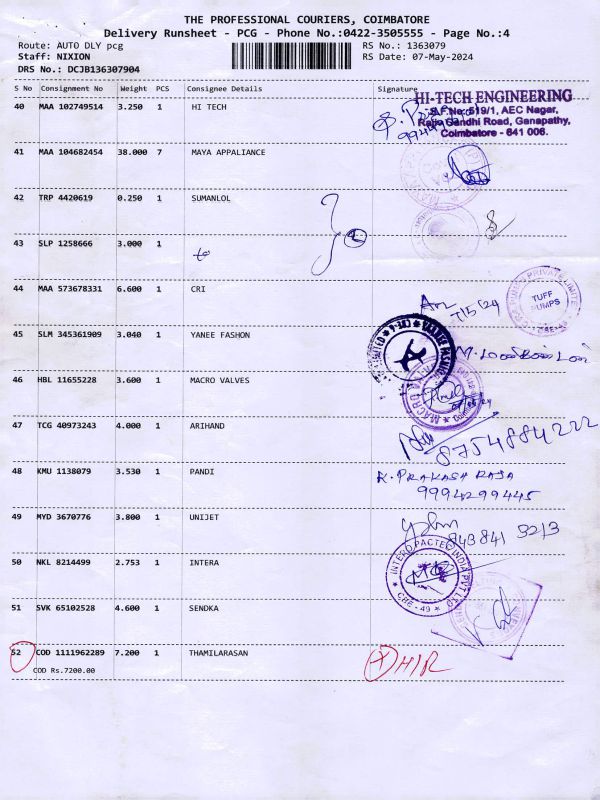 THE PROFESSIONAL COURIERS, COIMBATORE
Delivery Runsheet - PCG - Phone No.:0422-3505555 - Page No.:4
Route: AUTO DLY pcg
Staff: NIXION
DRS No.: DCJB136307904
RS No.: 1363079
RS Date: 07-May-2024
S No Consignment No Weight PCS Consignee Details Signature
40 MAA 102749514 3.250 1 HI TECH
HI-TECH ENGINEERING
S.F.No. 519/1, AEC Nagar,
Rajiv Gandhi Road, Ganapathy,
Coimbatore - 641 006.
41 MAA 104682454 38.000 7 MAYA APPALIANCE
42 TRP 4420619 0.250 1 SUMANLOL
43 SLP 1258666 3.000 1
44 MAA 573678331 6.600 1 CRI
7/5/24
TUFF
PUMPS
45 SLM 345361909 3.040 1 YANEE FASHON
46 HBL 11655228 3.600 1 MACRO VALVES
47 TCG 40973243 4.000 1 ARIHAND
8754884222
48 KMU 1138079 3.530 1 PANDI
K. PRAKASH RAJA
9994299445
49 MYD 3670776 3.800 1 UNIJET
843841 3213
50 NKL 8214499 2.753 1 INTERA
INTERO PACTECH INDIA PVT LTD
CBE - 49
51 SVK 65102528 4.600 1 SENDKA
52 COD 1111962289 7.200 1 THAMILARASAN
COD Rs.7200.00
H/R